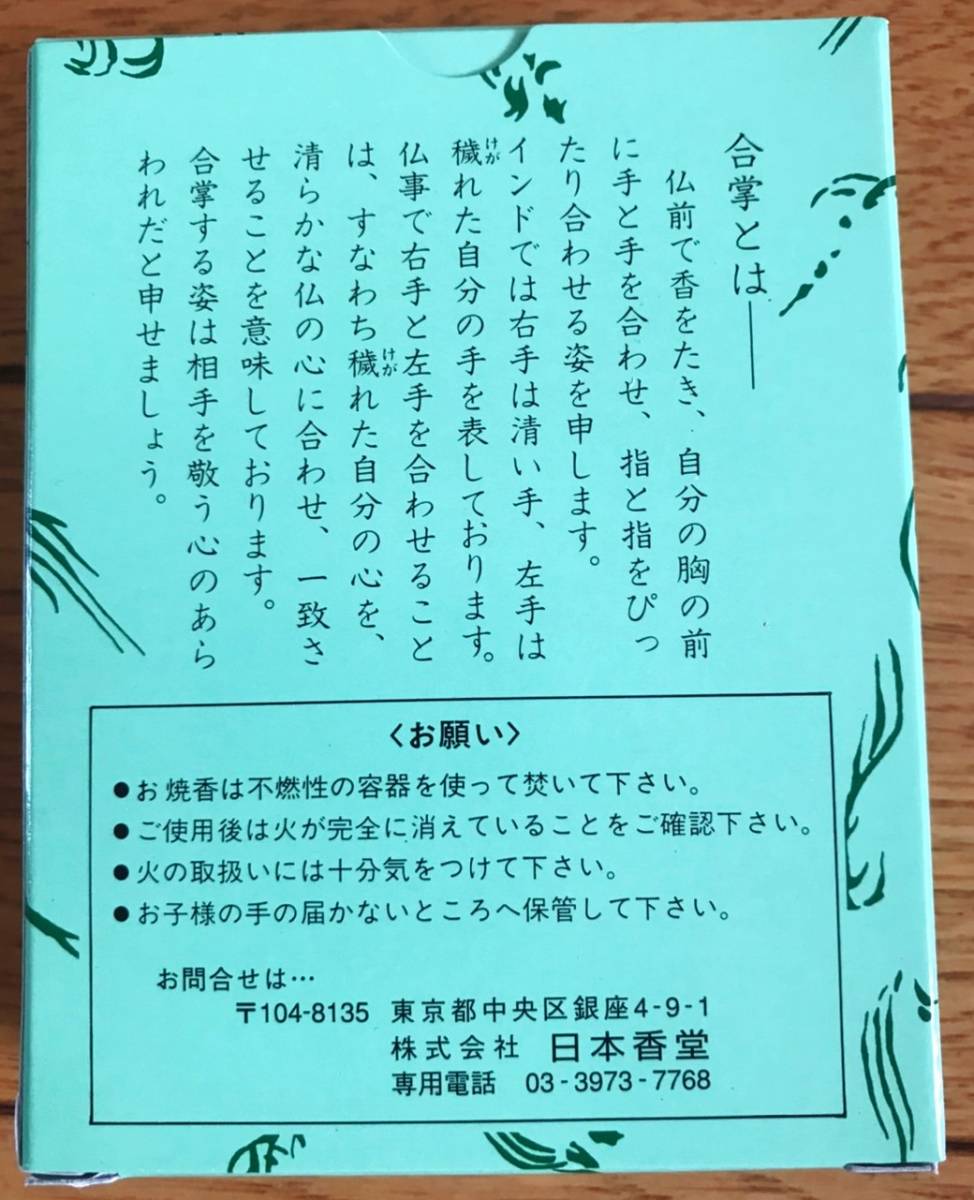 合掌とは――
仏前で香をたき、自分の胸の前
に手と手を合わせ、指と指をぴっ
たり合わせる姿を申します。
インドでは右手は清い手、左手は
穢れた自分の手を表しております。
けが
仏事で右手と左手を合わせること
は、すなわち穢れた自分の心を、
けが
清らかな仏の心に合わせ、一致さ
せることを意味しております。
合掌する姿は相手を敬う心のあら
われだと申せましょう。
〈お願い〉
●お焼香は不燃性の容器を使って焚いて下さい。
●ご使用後は火が完全に消えていることをご確認下さい。
●火の取扱いには十分気をつけて下さい。
●お子様の手の届かないところへ保管して下さい。
お問合せは…
〒104-8135 東京都中央区銀座4-9-1
株式会社 日本香堂
専用電話 03-3973-7768